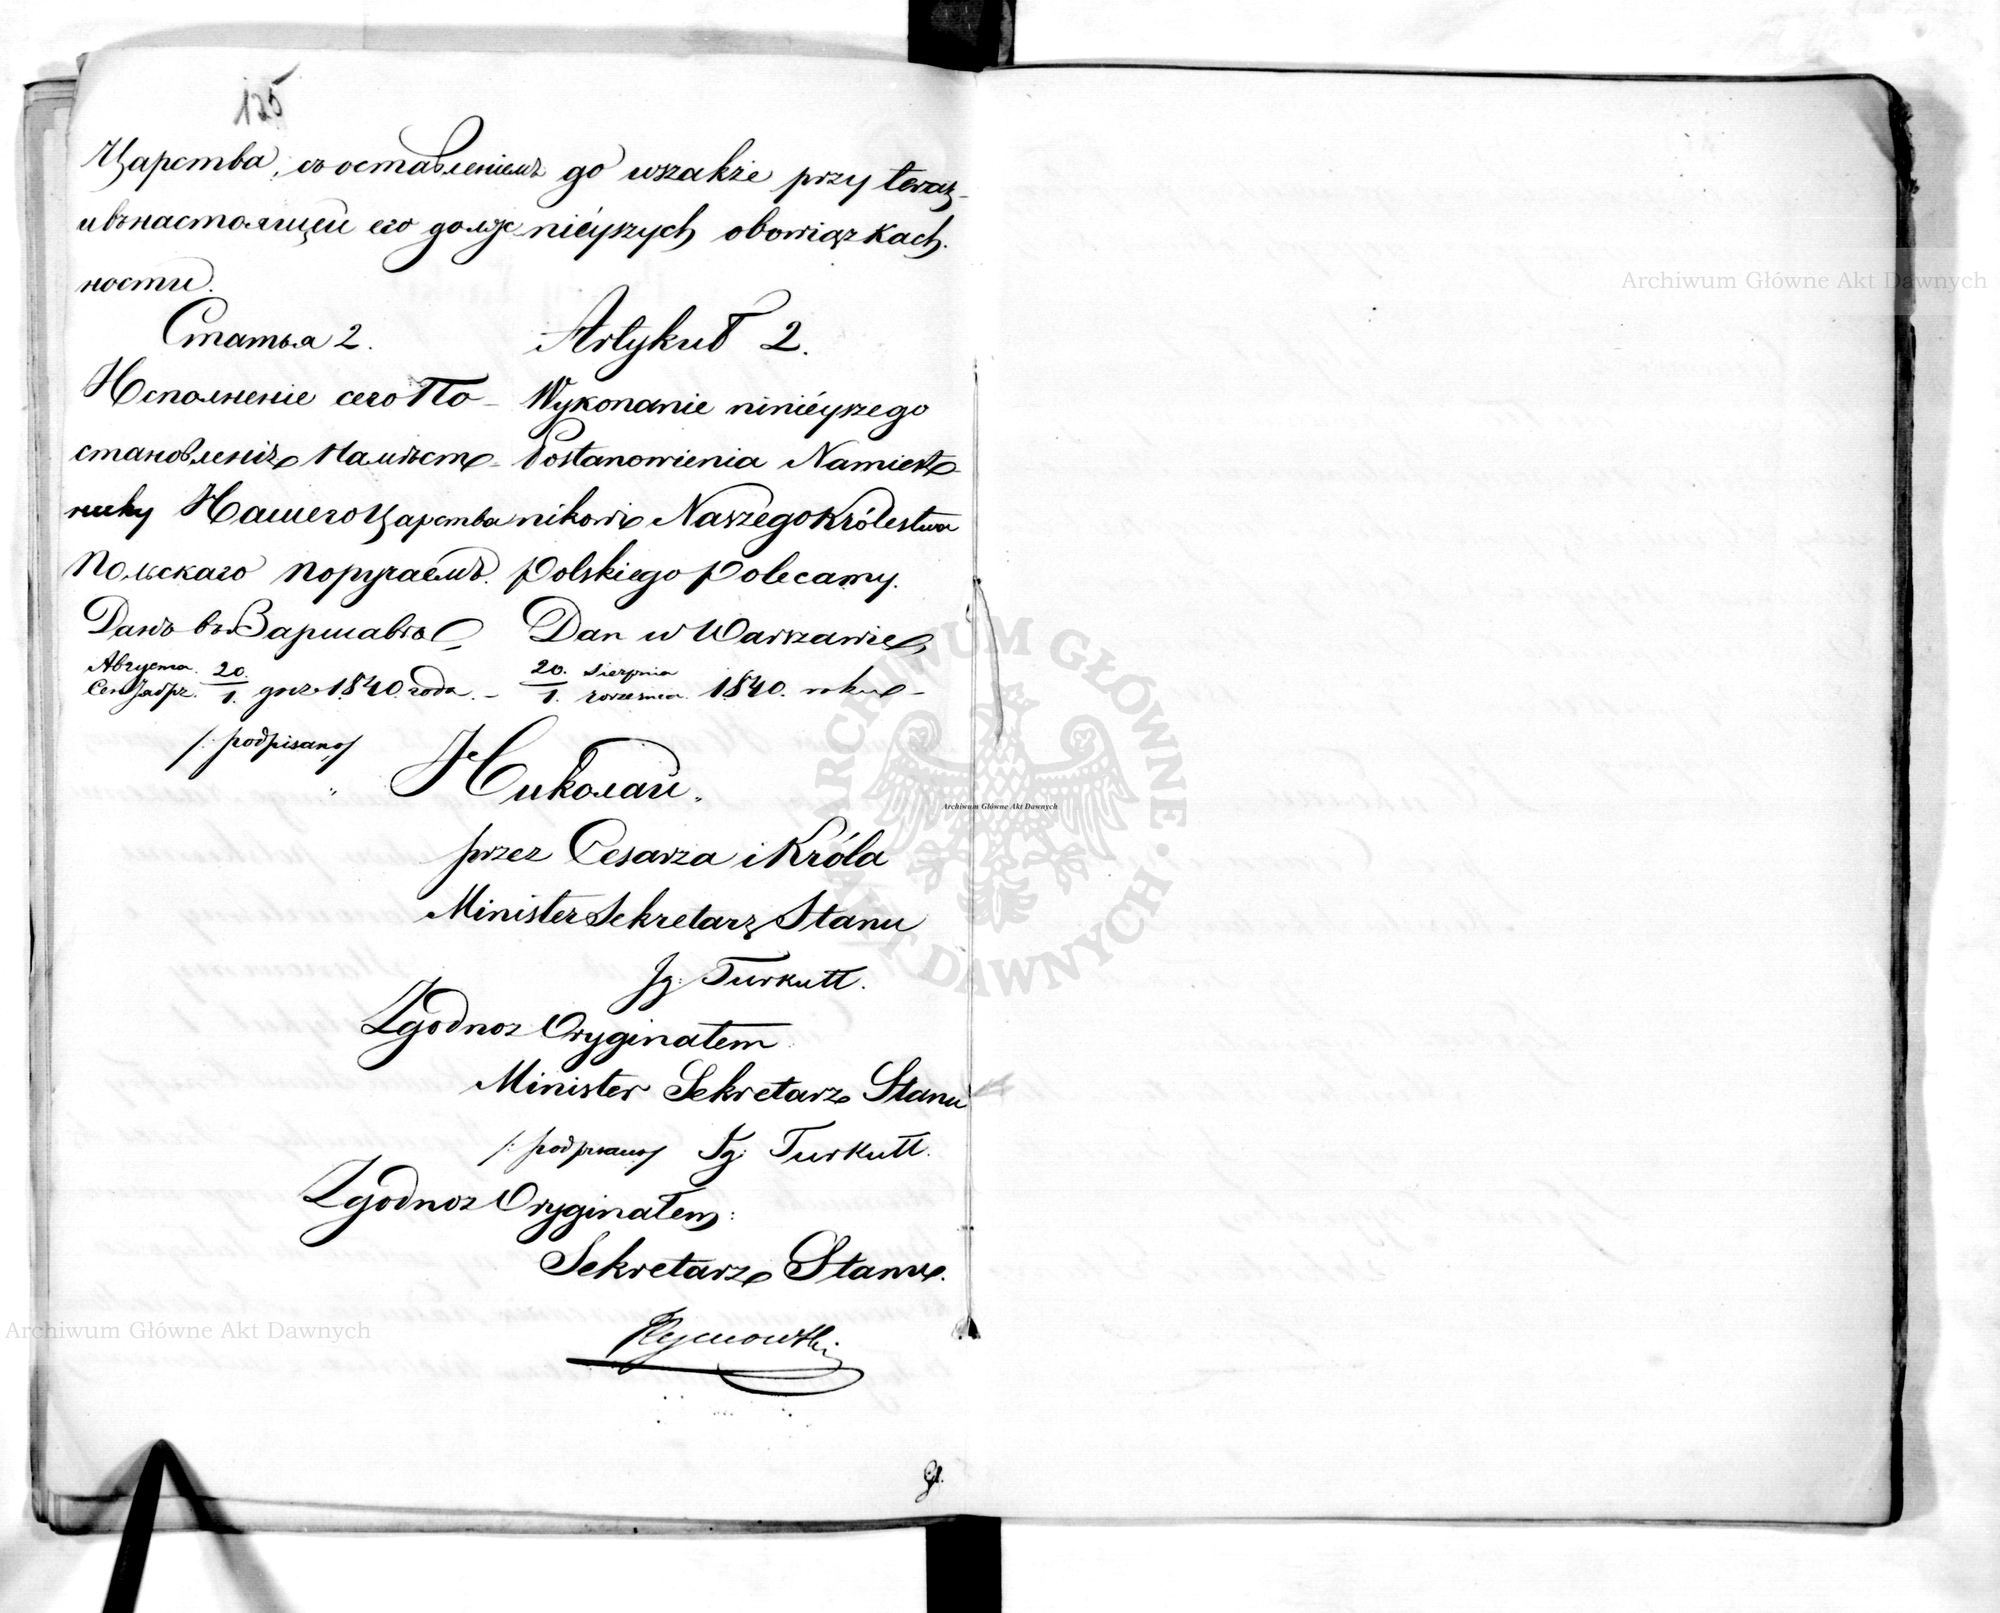 125
Царства, съ оставленіемъ
и въ настоящей его долж-
ности.
Статья 2.
Исполненіе сего По-
становленія Намѣст-
нику Нашего Царства
Польскаго поручаемъ.
Данъ въ Варшавѣ
Августа 20.
Сентября 1. дня 1840. года. –
go wszakże przy teraz-
nieyszych obowiązkach.
Artykuł 2.
Wykonanie ninieyszego
Postanowienia Namiest-
nikowi Naszego Królestwa
Polskiego Polecamy.
Dan w Warszawie
20. Sierpnia
1. Września 1840. roku –
/: podpisano/
„ Николай „
przez Cesarza i Króla
Minister Sekretarz Stanu
Ig: Turkułł.
Zgodno z Oryginałem
Minister Sekretarz Stanu
/: podpisano/ Ig: Turkułł.
Zgodno z Oryginałem:
Sekretarz Stanu.
Archiwum Główne Akt Dawnych
Archiwum Główne Akt Dawnych
Archiwum Główne Akt Dawnych
ARCHIWUM GŁÓWNE
AKT DAWNYCH